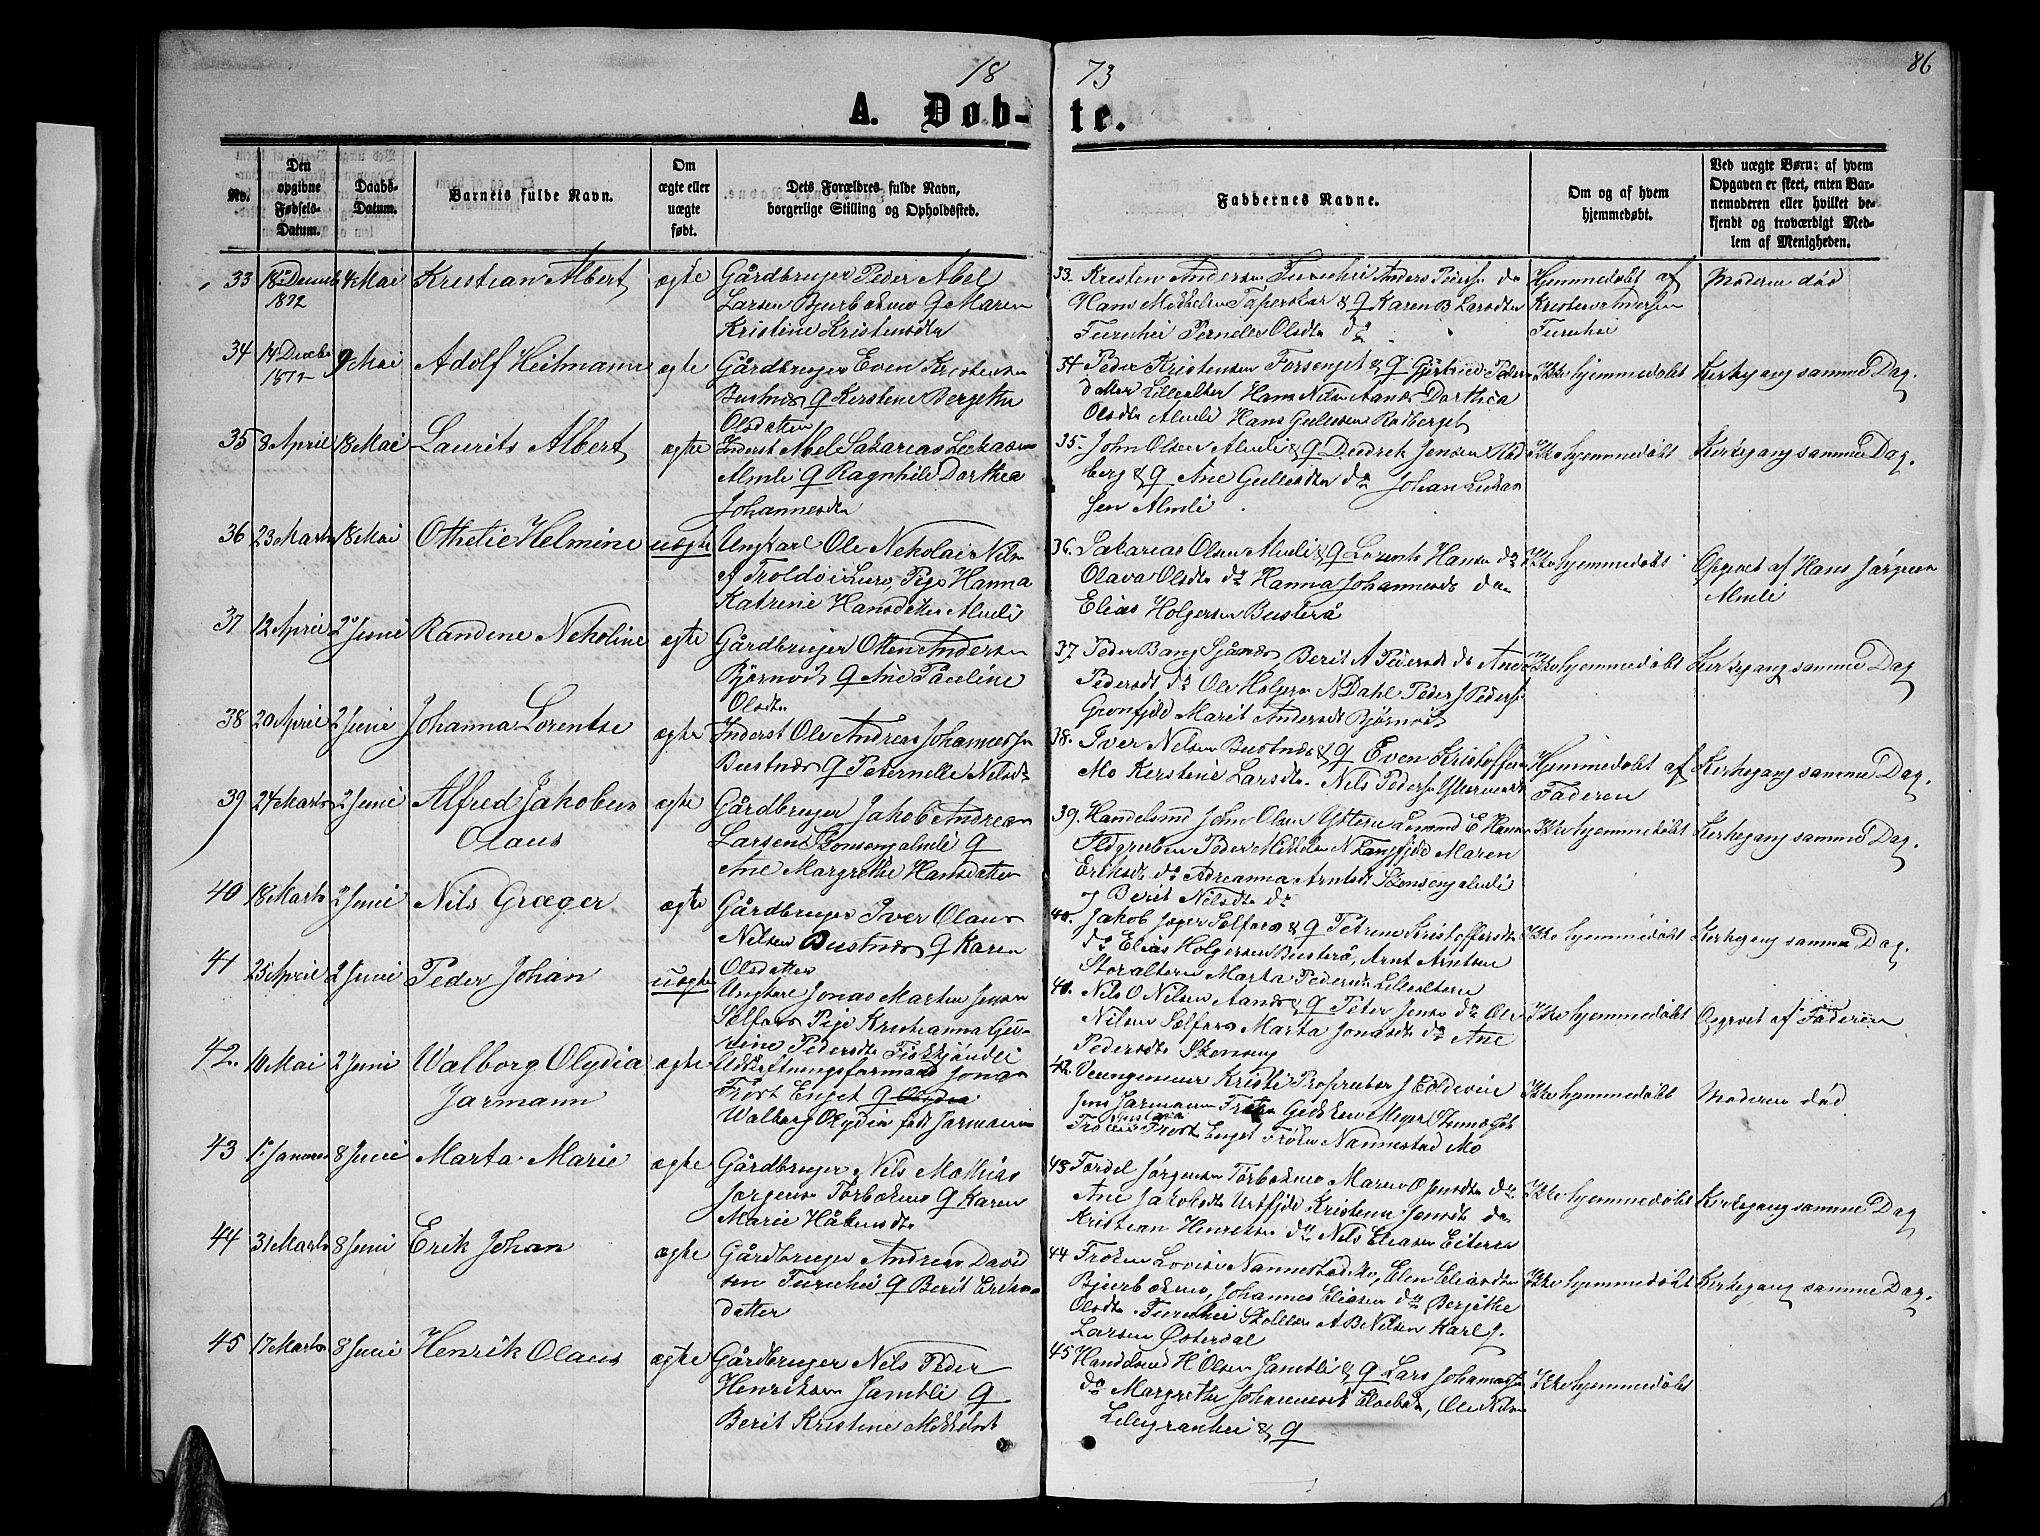 18 73
86
A. Døb- te.
No.
Den opgivne Fødsels-Datum.
Daabs-Datum.
Barnets fulde Navn.
Om ægte eller uægte født.
Dets Forældres fulde Navn, borgerlige Stilling og Opholdssted.
Faddernes Navne.
Om og af hvem hjemmedøbt.
Ved uægte Børn: af hvem Opgaven er skeet, enten Barnemoderen eller hvilket bekjendt og troværdigt Medlem af Menigheden.
33 18 Decemb 1872 4 Mai Kristian Albert ægte Gårdbruger Peder Abel
Larsen Bjerbekmo Q Maren
Kristine Kristensdtr
33. Kristen Andersen Furuhei Anders Peders do
Hans Mikkelsen & Q Karen B Larsdtr
Furuhei Pernelle Olsdtr do
Hjemmedøbt af
Kristen Andersen
Furuhei
Moderen død
34 14 Decbr 1872 9 Mai Adolf Heitmann ægte Gårdbruger Even Kristensen
Bustnes Q Kerstine Bergethe
Olsdatter
34 Peder Kristensen Forsenget & Q Gjertrud Peders
datter Lillealter Hans Nilsen Aanes Dorthea
Olsdtr Almli Hans Gullesen Rødberget
Ikke hjemmedøbt Kirkegang samme Dag.
35 8 April 18 Mai Laurits Albert ægte Inderst Abel Sakarias Lukasen
Almli Q Ragnhild Dorthea
Johannesdtr
35. John Olsen Almli & Q Diedrek Jensen Rød
berg & Q Ane Gullesdtr do Johan Lukas
sen Almli
Ikke hjemmedøbt Kirkegang samme Dag.
36 23 Marts 18 Mai Othetie Helmine uægte Ungkarl Ole Nekolai Nils
af Troldøi Lurø, Pige Hanna
Katrine Hansdatter Almli
36. Sakarias Olsen Almli & Q Lorents Hansen do
Olava Olsdtr do Hanna Johannesdt do
Elias Holgersen Busterå
Ikke hjemmedøbt Opgivet af Hans Jørgen
Almli
37 12 April 2 Juni Randine Nekoline ægte Gårdbruger Otten Andersen
Bjørnod Q Ane Pauline
Olsdtr
37 Peder Bang Sjånes, Berit A Pedersdt do Ane
Pedersdt do Ole Holgers N Dahl Peder J Peders
Grønfjeld Marit Andersdt Bjørnod
Ikke hjemmedøbt Kirkegang samme Dag
38 20 April 2 Juni Johanna Lorentse ægte Inderst Ole Andreas Johannessen
Bustnes Q Peternelle Nilsdt
38. Iver Nilsen Bustnes & Q Even Kristoffersen
Mo Kerstine Larsdtr Nils Peders Ytteren
Hjemmedøbt af
Faderen
Kirkegang samme Dag.
39 24 Marts 2 Juni Alfred Jakobus
Olaus
ægte Gårdbruger Jakob Andreas
Larsen Skonsengalmli Q
Ane Margrethe Hansdatter
39. Handelsmd John Olsen Ytteren Amund E Hans
Ildgruben Peder Mikkelsen N Langfjeld Maren
Eriksdt do Adreanna Arntsdt Skonsengalmli
og Berit Nilsdt do
Ikke hjemmedøbt Kirkegang samme Dag.
40 18 Marts 2 Juni Nils Græger ægte Gårdbruger Iver Olaus
Nilsen Bustnes Q Karen
Olsdatter
40. Jakob Jæger Selfors & Q Petrine Kristoffersdt
do Elias Holgersen Busterå, Arnt Arntsen
Storalteren Marta Pedersdt Lillealteren
Ikke hjemmedøbt Kirkegang samme Dag.
41 25 April 2 Juni Peder Johan uægte Ungkarl Jonas Martin Jensen
Selfors Pige Kristianna Gu-
rine Pedersdtr Fiskkjøndli
41. Nils O Nilsen Aanes & Q Peter Jensen do Ole
Nilsen Selfors Marta Jonasdt do Ane
Pedersdtr Skonseng
Ikke hjemmedøbt Opgivet af Faderen
42. 10 Mai 2 Juni Walborg Olydia
Jarmann
ægte Udskiftningsformand Jonas
Frost Enget Q Olydia
Walborg Olydia født Jarmann
42. Jens Jarmann Gedske Meyer
Frost Enget Frøken Nannestad Mo
Ikke hjemmedøbt Moderen død
43 1 Januar 8 Juni Marta Marie ægte Gårdbruger Nils Mathias
Jørgens Tørbekmo Q Karen
Marie Håkensdtr
43 Fordel Jørgensen Tørbekmo Maren O Jensdtr do
Ane Jakobsdt Urtfjeld Kristine Jensdt do
Kristian Henriksen do Nils Eliasen Eiteren
Ikke hjemmedøbt Kirkegang samme Dag
44 31 Marts 8 Juni Erik Johan ægte Gårdbruger Andreas David
sen Furuhei Q Berit Eriks
datter
44 Frøken Lovise Nannestad Mo, Elen Eliasdtr
Bjerbekmo, Johannes Eliasen do Bergithe
Olsdtr Furuhei Skolelær A B Nilsen Karl J.
Larsen Østerdal
Ikke hjemmedøbt Kirkegang samme Dag.
45 17 Marts 8 Juni Henrik Olaus ægte Gårdbruger Nils Peder
Henriksen Jamtli Q
Berit Kristine Mikkelsdt
45 Handelsmd H Olsen Jamtli & Q Lars Johannes
do Margrethe Johannesdt, Ole Nilsen
Lillegranhei & Q
Ikke hjemmedøbt